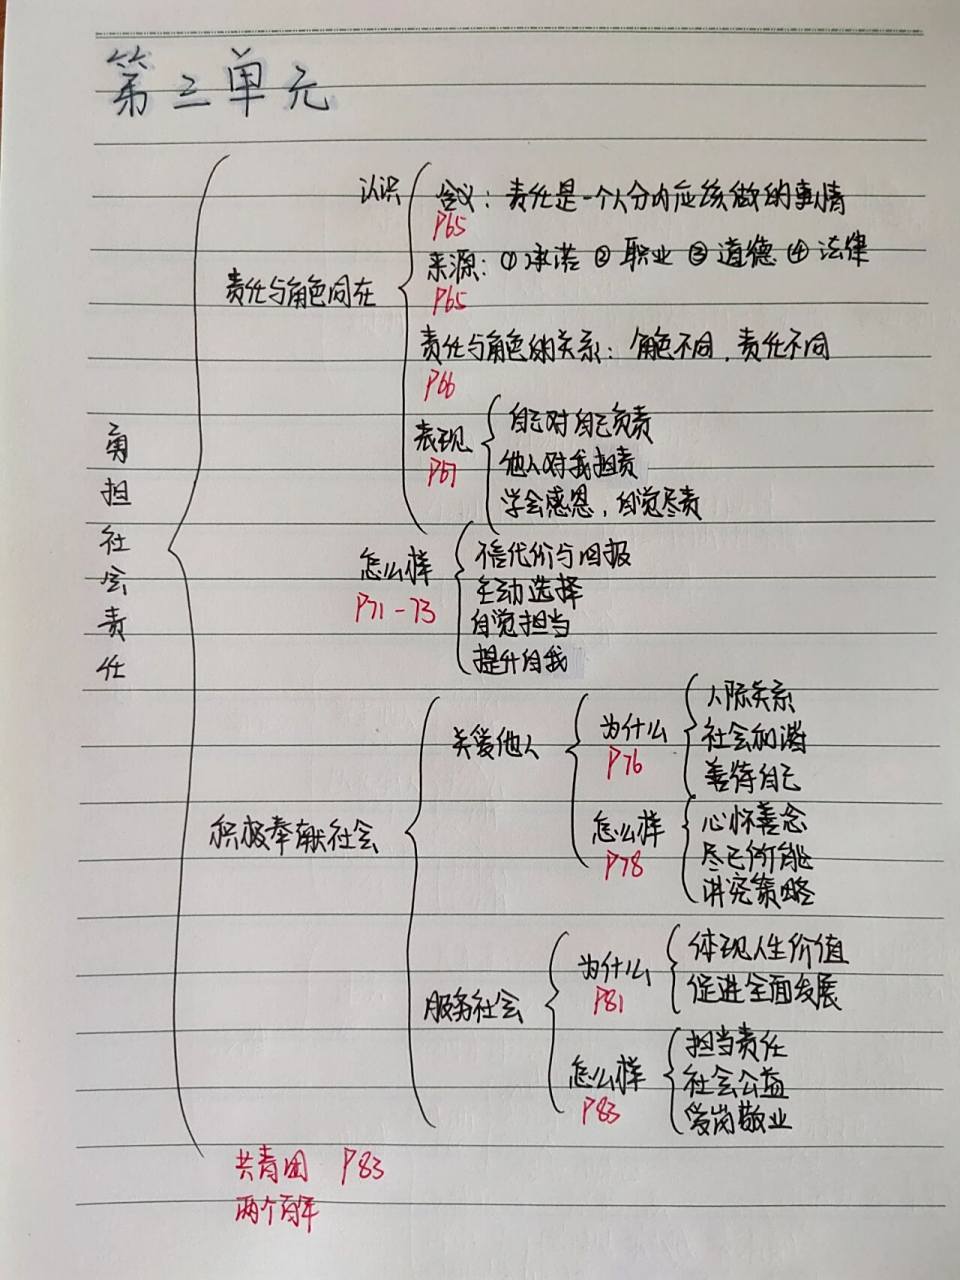 第三单元
勇担社会责任
责任与角色同在
认识
含义：责任是一个人分内应该做的事情
P65
来源：①承诺 ②职业 ③道德 ④法律
P65
责任与角色的关系：角色不同，责任不同
P66
表现
P67
自己对自己负责
他人对我担责
学会感恩，自觉尽责
怎么样
P71-73
不言代价与回报
主动选择
自觉担当
提升自我
积极奉献社会
关爱他人
为什么
P76
人际关系
社会和谐
善待自己
怎么样
P78
心怀善念
尽己所能
讲究策略
服务社会
为什么
P81
体现人生价值
促进全面发展
怎么样
P83
担当责任
社会公益
爱岗敬业
共青团 P83
两个百年